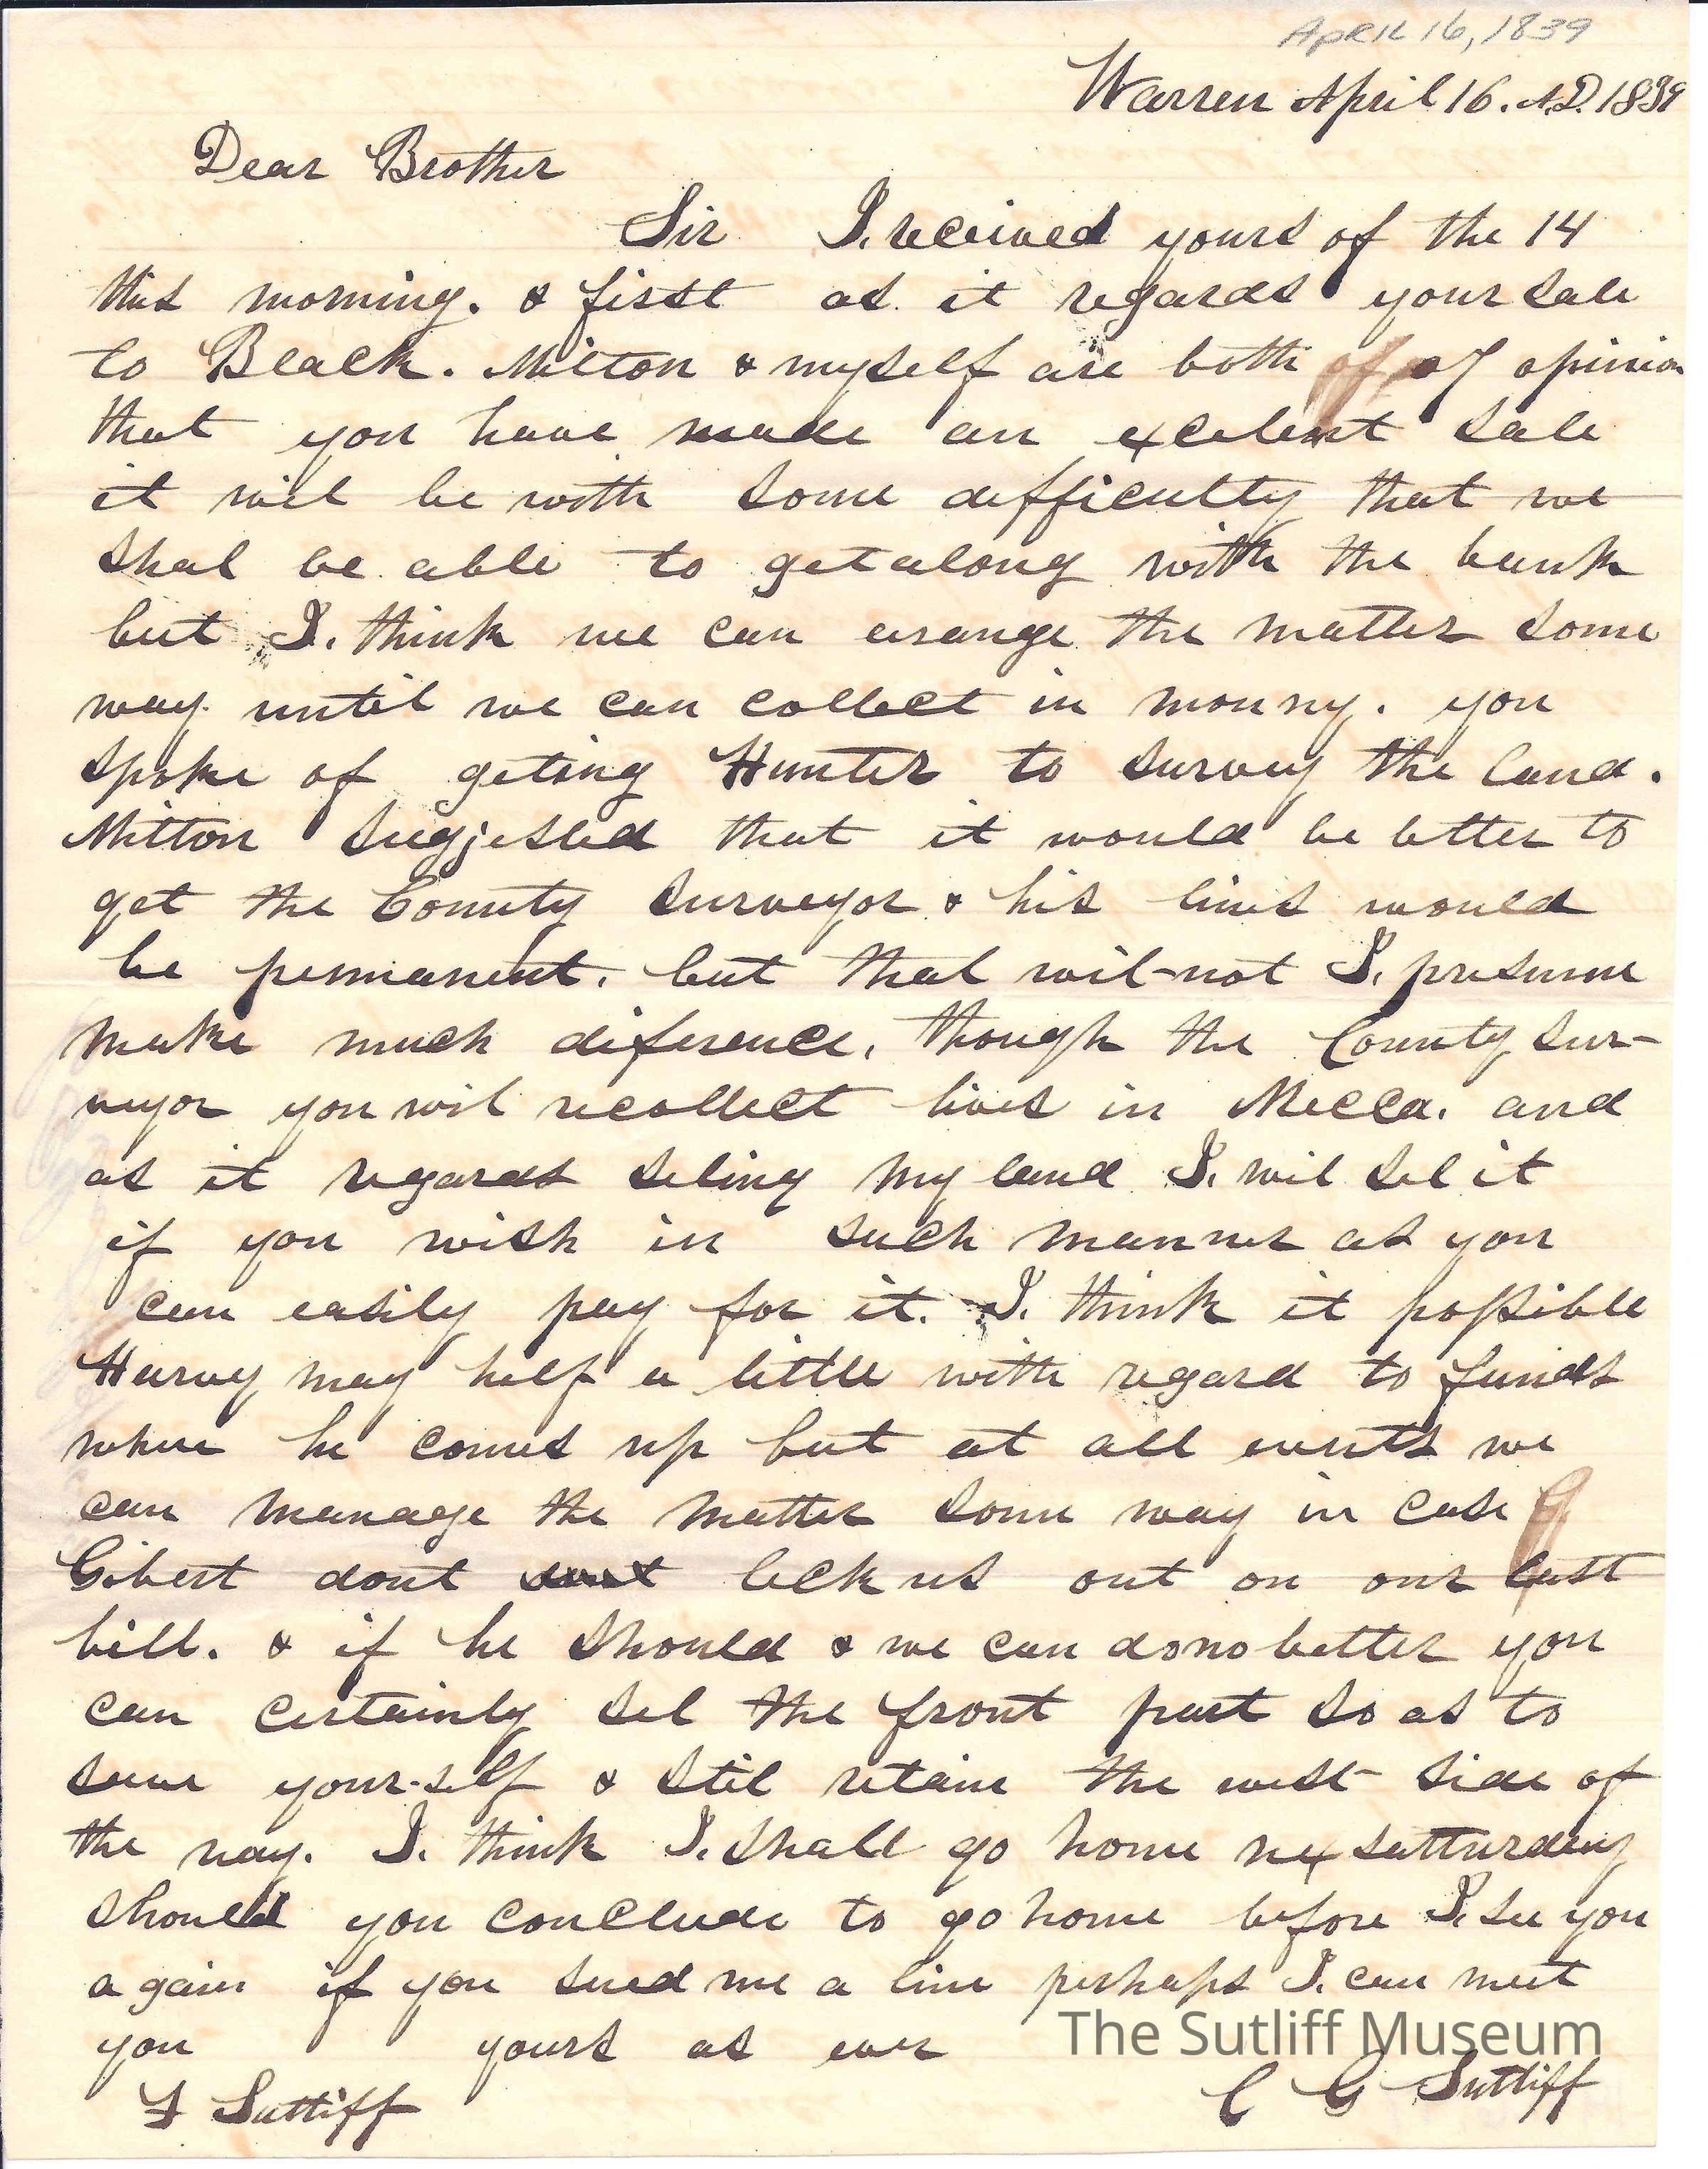 APRIL 16, 1839
Warren April 16. A.D. 1839
Dear Brother
Sir I. received yours of the 14
this morning. & first as it regards your sale
to Black. Milton & myself are both of of opinion
that you have made an excelent sale
it wil be with some difficulty that we
shal be able to get along with the bank
but I. think we can arange the matter some
way until we can collect in monny. you
spoke of geting Hunter to survey the land.
Milton sugjested that it would be better to
get the County surveyor & his lines would
be permanent. but that wil not I. presume
make much diference. though the County sur-
veyor you wil recollect lives in Mecca. and
as it regards seling my land I. wil sel it
if you wish in such manner as you
can easily pay for it. I. think it possible
Harvy may help a little with regard to funds
when he comes up but at all events we
can manage the matter some way in case
Gibert dont dont lick us out on our last
bill. & if he should & we can do no better you
can certainly sel the front part so as to
save your-self & stil retain the west side of
the way. I. think I. shall go home nex satturday
should you conclude to go home before I. see you
again if you send me a line perhaps I. can meet
you yours as ever
The Sutliff Museum
C G Sutliff
F Sutliff